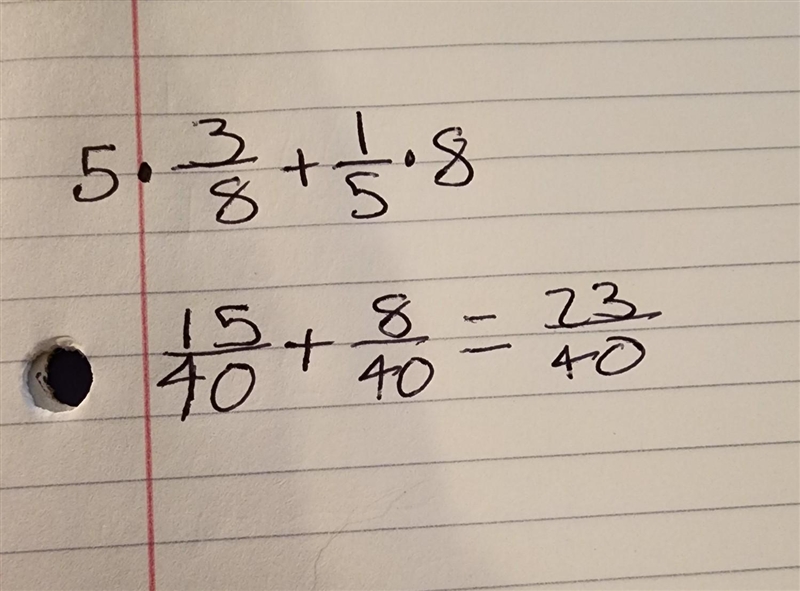 5 · 3/8 + 1/5 · 8
15/40 + 8/40 = 23/40